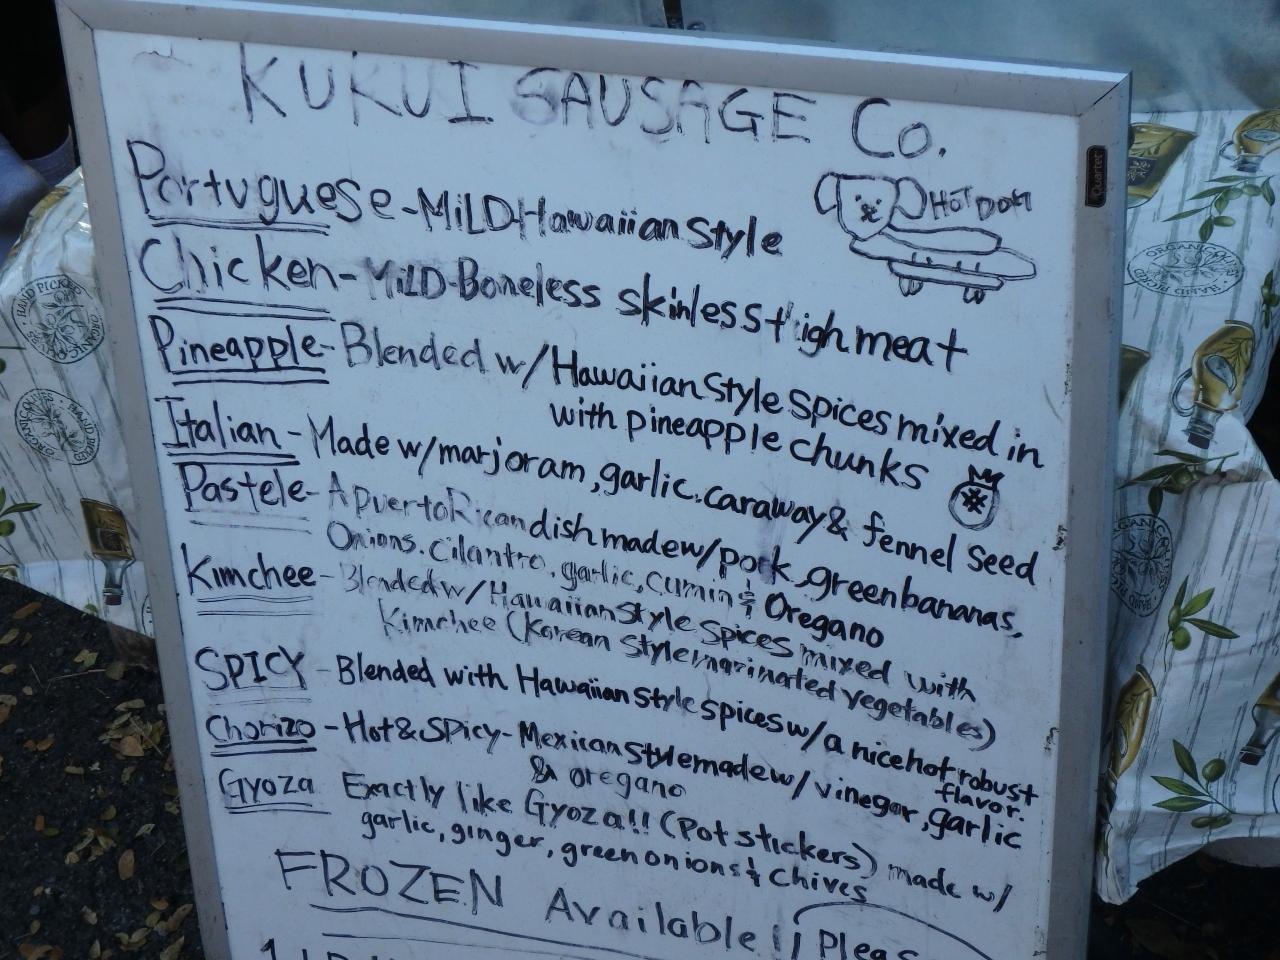 KUKUI SAUSAGE Co.
Portuguese - MiLD Hawaiian Style
HOT DOG
Chicken - MiLD - Boneless skinless thigh meat
Pineapple - Blended w/ Hawaiian Style Spices mixed in
with pineapple chunks
Italian - Made w/ marjoram, garlic, caraway & fennel seed
Pastele - A puerto Rican dish made w/ pork, green bananas,
Onions, cilantro, garlic, cumin & Oregano
Kimchee - Blended w/ Hawaiian Style Spices mixed with
Kimchee (Korean Style marinated vegetables)
SPICY - Blended with Hawaiian Style spices w/ a nice hot robust
flavor.
Chorizo - Hot & SPicy - Mexican Style made w/ vinegar, garlic
& oregano
Gyoza Exactly like Gyoza!! (Pot stickers) made w/
garlic, ginger, green onions & Chives
FROZEN Available!!
Quartet
HAND PICKED
ORGANIC